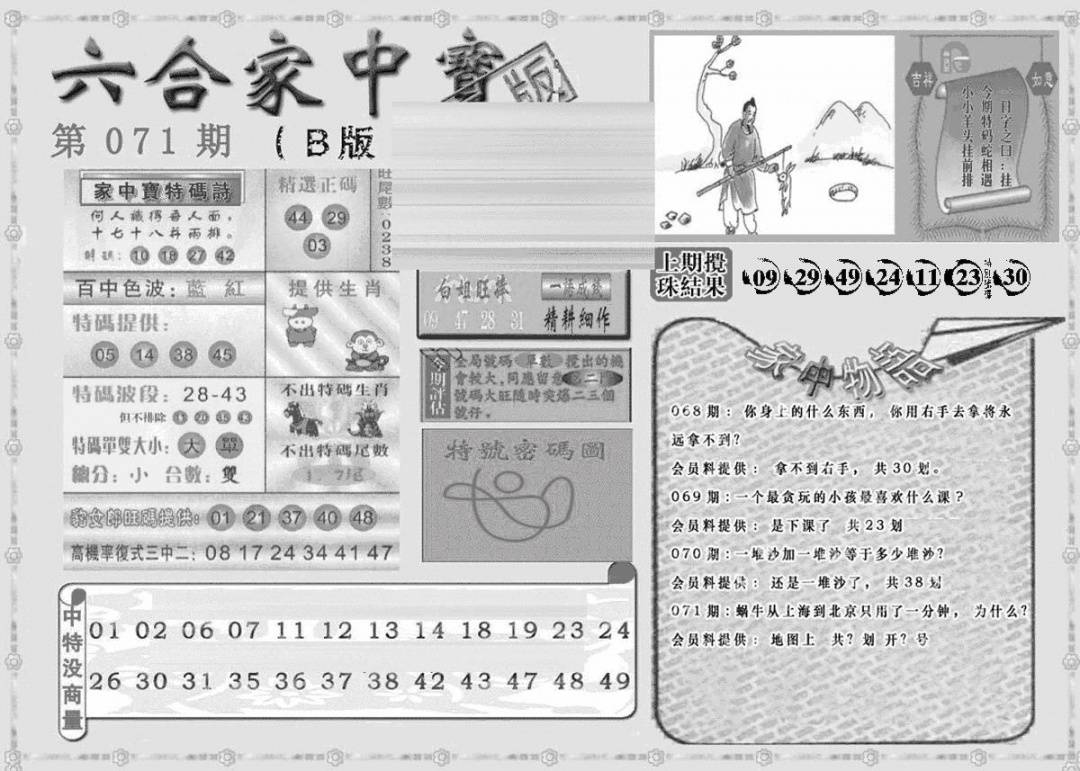 六合家中寶
版
第071期
(B版
家中寶特碼詩
何人識得吾人面，
十七十八并兩排。
10 18 27 42
精選正碼
44 29
03
旺尾數：0238
百中色波：藍 紅
特碼提供：
05 14 38 45
提供生肖
特碼波段：28-43
但不排除
特碼單雙大小：大 單
總分：小 合數：雙
不出特碼生肖
不出特碼尾數
旺碼提供：01 21 37 40 48
高機率復式三中二：08 17 24 34 41 47
09 47 28 31
精耕細作
今期評估
全局號碼 單數 攪出的機
會較大，同應留意
號碼大旺隨時突爆二三個
號仔。
特號密碼圖
吉祥
如意
一日字之曰：挂
今期特码蛇相遇
小小羊头挂前排
上期攪
珠結果
09 29 49 24 11 23 特別號碼 30
068期：你身上的什么东西，你用右手去拿将永
远拿不到？
会员料提供：拿不到右手，共30划。
069期：一个最贪玩的小孩最喜欢什么课？
会员料提供：是下课了 共23划
070期：一堆沙加一堆沙等于多少堆沙？
会员料提供：还是一堆沙了，共38划
071期：蜗牛从上海到北京只用了一分钟，为什么？
会员料提供：地图上 共？划 开？号
中特没商量
01 02 06 07 11 12 13 14 18 19 23 24
26 30 31 35 36 37 38 42 43 47 48 49